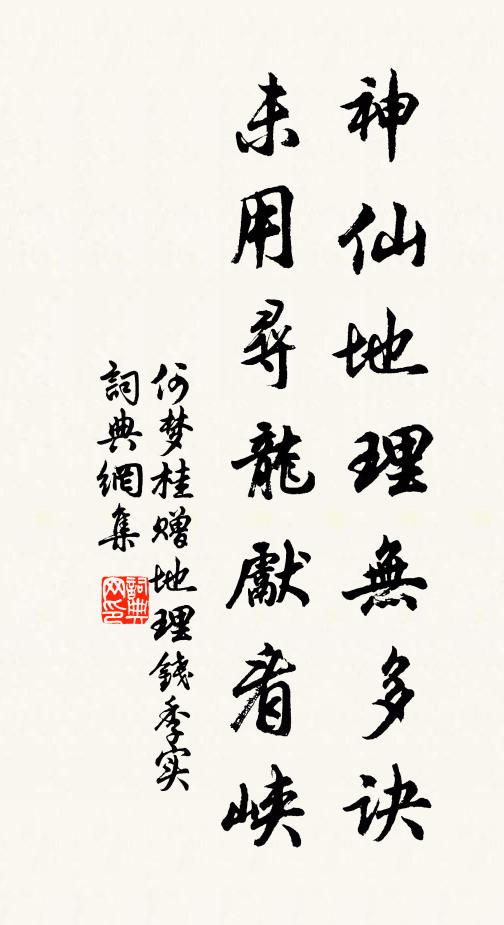 神仙地理無多訣
未用尋龍獻看峽
何梦桂赠地理錢季实
詞典網集
詞典